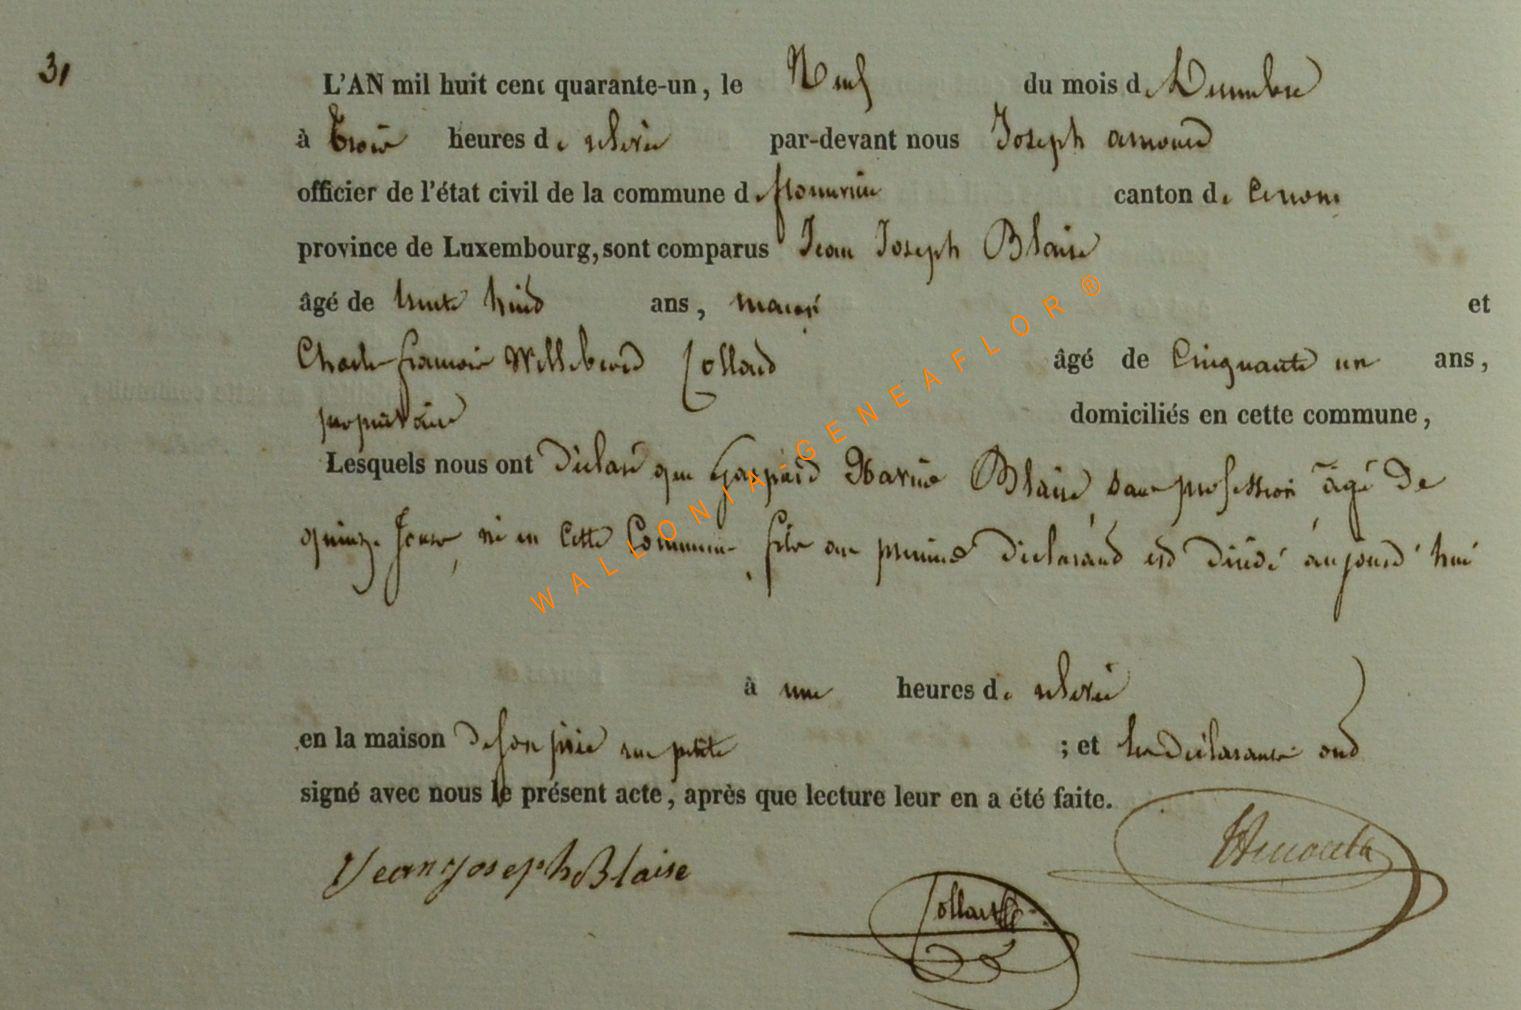 31
L'AN mil huit cent quarante-un, le Neuf du mois de Décembre
à Trois heures de relevée par-devant nous Joseph arnould
officier de l'état civil de la commune de florenville canton de
province de Luxembourg, sont comparus Jean Joseph Blaise
âgé de trente huid ans, et
Charle francois Willebrord Collard âgé de Cinquante un ans,
propriétaire domiciliés en cette commune,
Lesquels nous ont déclaré que Gaspard Xavier Blaise, sans profession âgé De
quinze Jours, né en Cette Commune, fils au premier Déclarand est Décédé aujourd'hui
à une heures de relevée
en la maison De son père rue petite ; et les Déclarants ond
signé avec nous le présent acte, après que lecture leur en a été faite.
Jean Joseph Blaise
Collard
WALLONIA-GENEAFLOR®